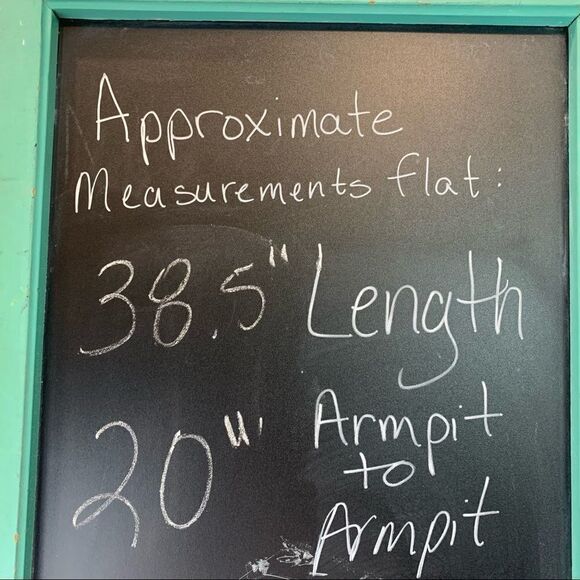 Approximate
Measurements flat:
38.5" Length
20" Armpit
to
Armpit